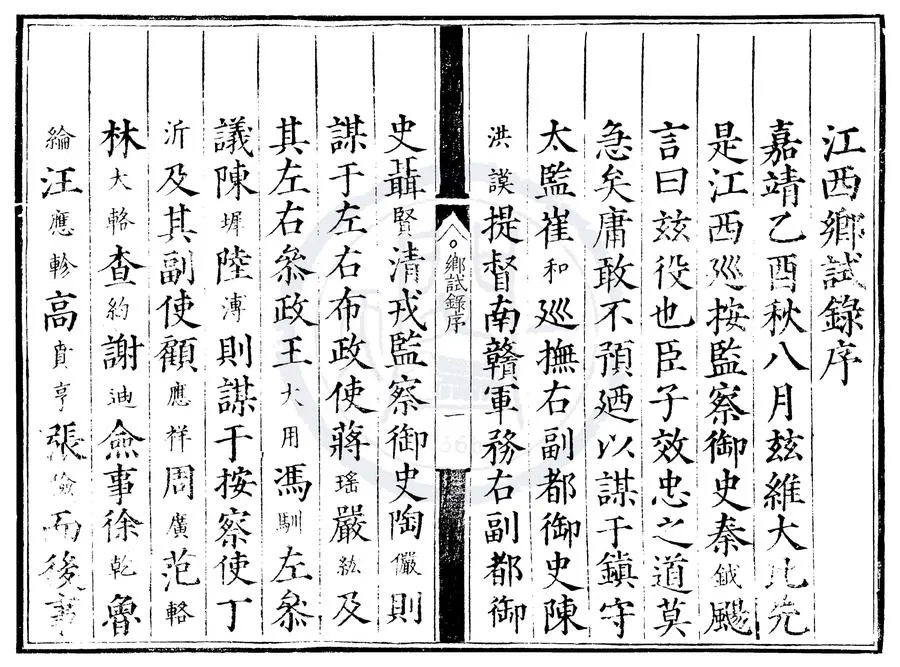 江西鄉試錄序
嘉靖乙酉秋八月玆維大比先
是江西廵按監察御史秦鉞颺
言曰玆役也臣子效忠之道莫
急矣庸敢不預廼以謀于鎮守
太監崔和廵撫右副都御史陳
洪謨提督南贛軍務右副都御
鄉試錄序 一
史聶賢清戎監察御史陶儼則
謀于左右布政使蔣瑤嚴紘及
其左右叅政王大用馮馴左叅
議陳墀陸溥則謀于按察使丁
沂及其副使顧應祥周廣范輅
林大輅查約謝迪僉事徐乾魯
綸汪應軫高賁亨張儉而後事